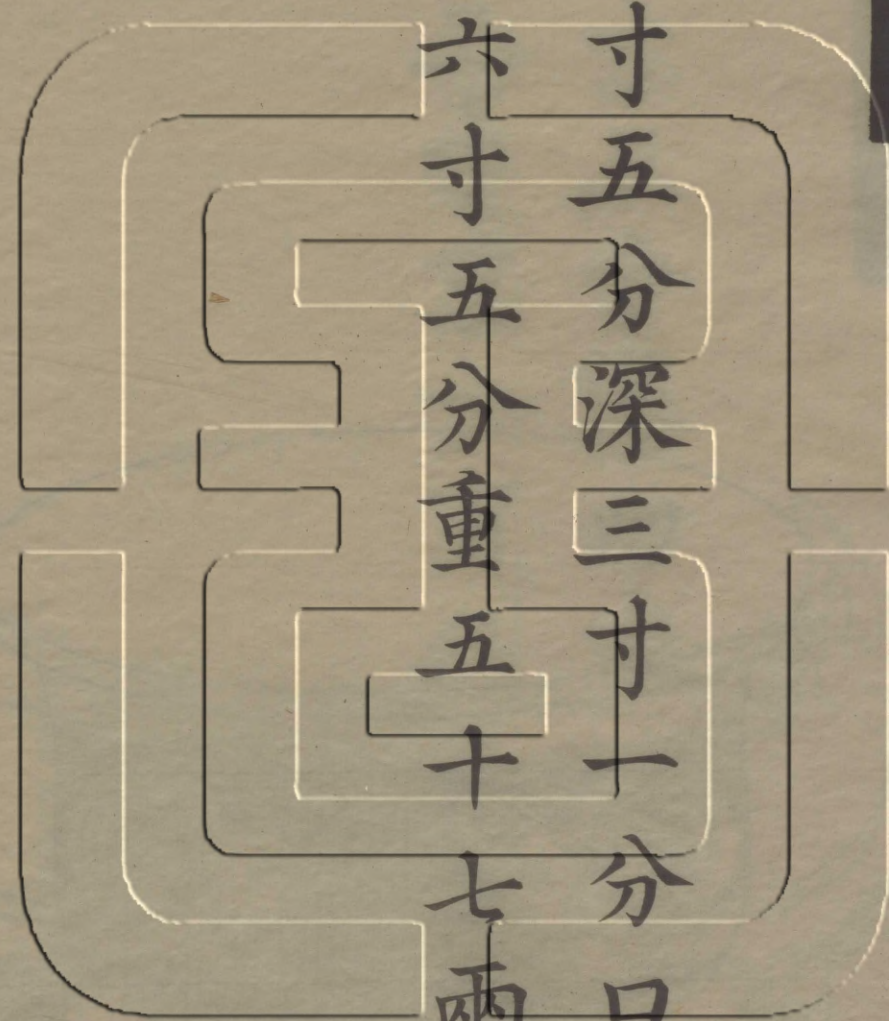 寸五分深三寸一分口
六寸五分重五十七兩